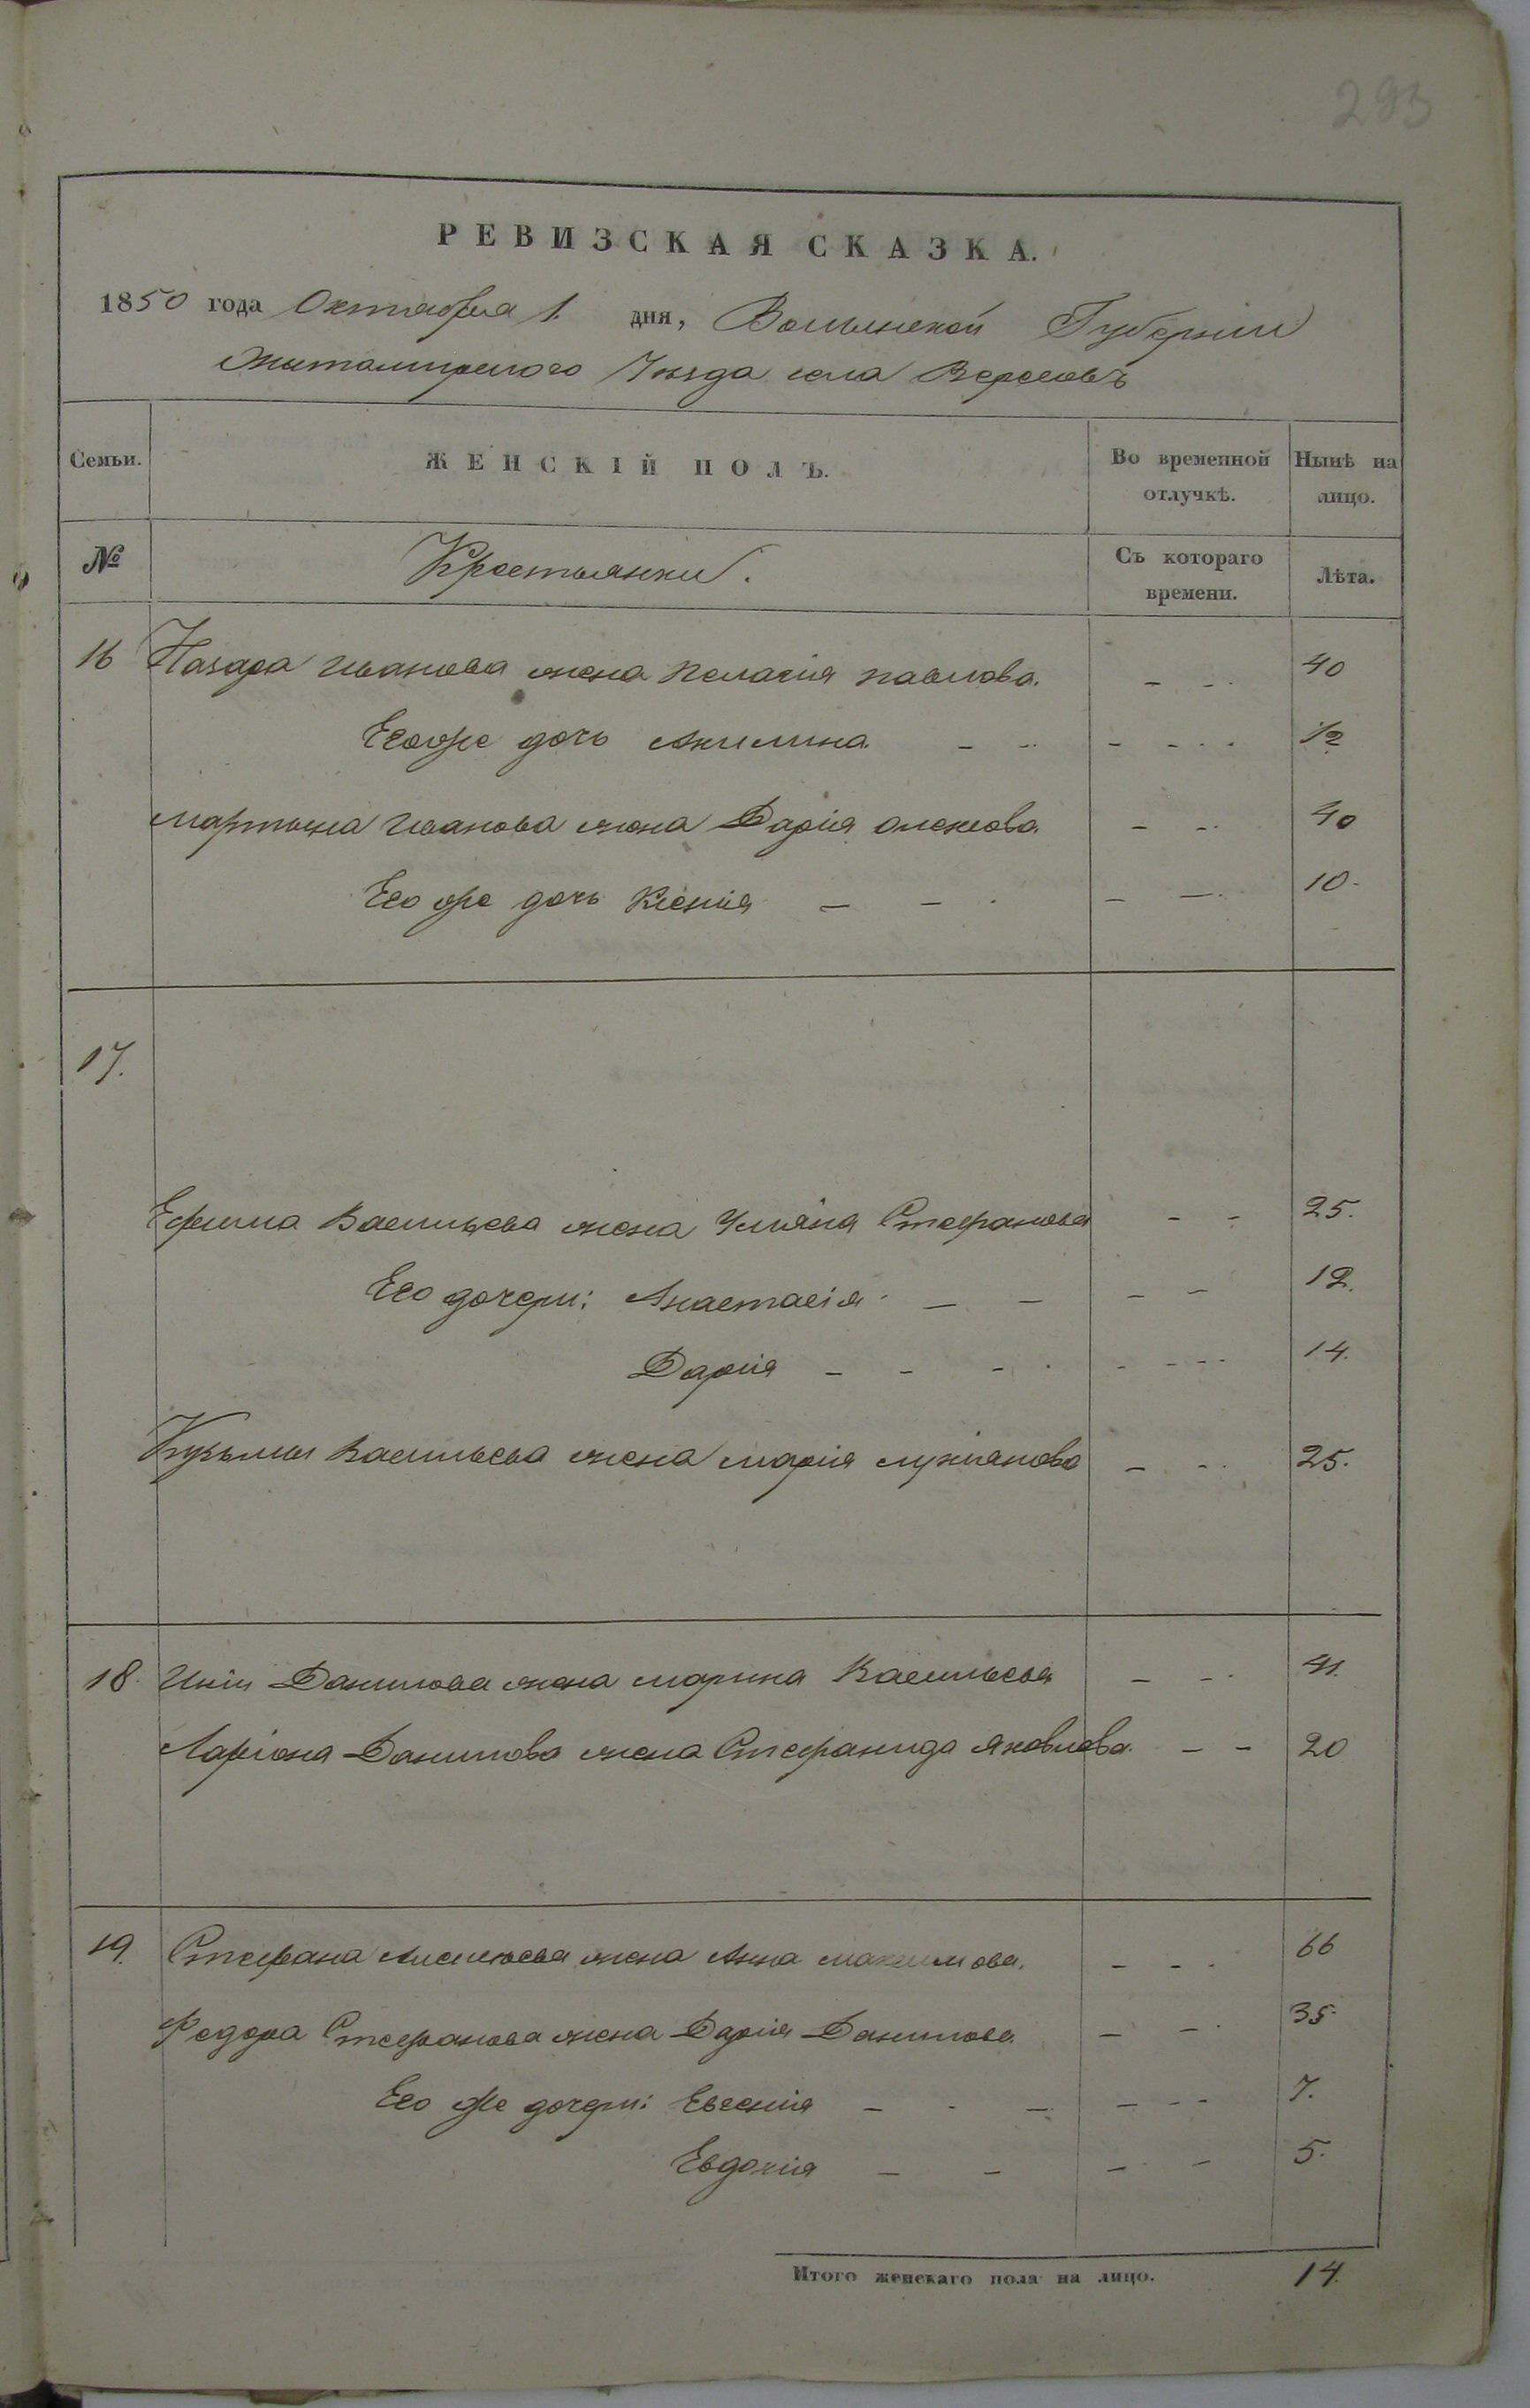 293
РЕВИЗСКАЯ СКАЗКА.
1850 года Октября 1. дня, Волынской Губернии
Житомирского Уезда села Вересовъ
Семьи. ЖЕНСКІЙ ПОЛЪ. Во временной отлучкѣ. Нынѣ на лицо.
№ Крестьянки. Съ котораго времени. Лѣта.
16 Назара Иванова жена Пелагия павлова. – – 40
Его же дочь Акилина – – – – – – 1/2
мартына Иванова жена Дарія алексова – – 40
Его же дочь Ксенія – – – – 10.
17.
Ефима Васильева жена Уліяна Стефанова – – 25.
Его дочери: Анастасія – – – – 12.
Дарія – – – – – – 14.
Кузьмы Васильева жена марія лукіянова – – 25.
18. Данилова жена марина Васильева – – 41.
Ларіона Данилова жена Стефанида яковлева. – – 20
19. Стефана жена Анна максимова. – – 66
Федора Стефанова жена Дарія Данилова. – – 35.
Его же дочери: Евгенія – – – – – – 7.
Евдокія – – – – 5.
Итого женскаго пола на лицо. 14.